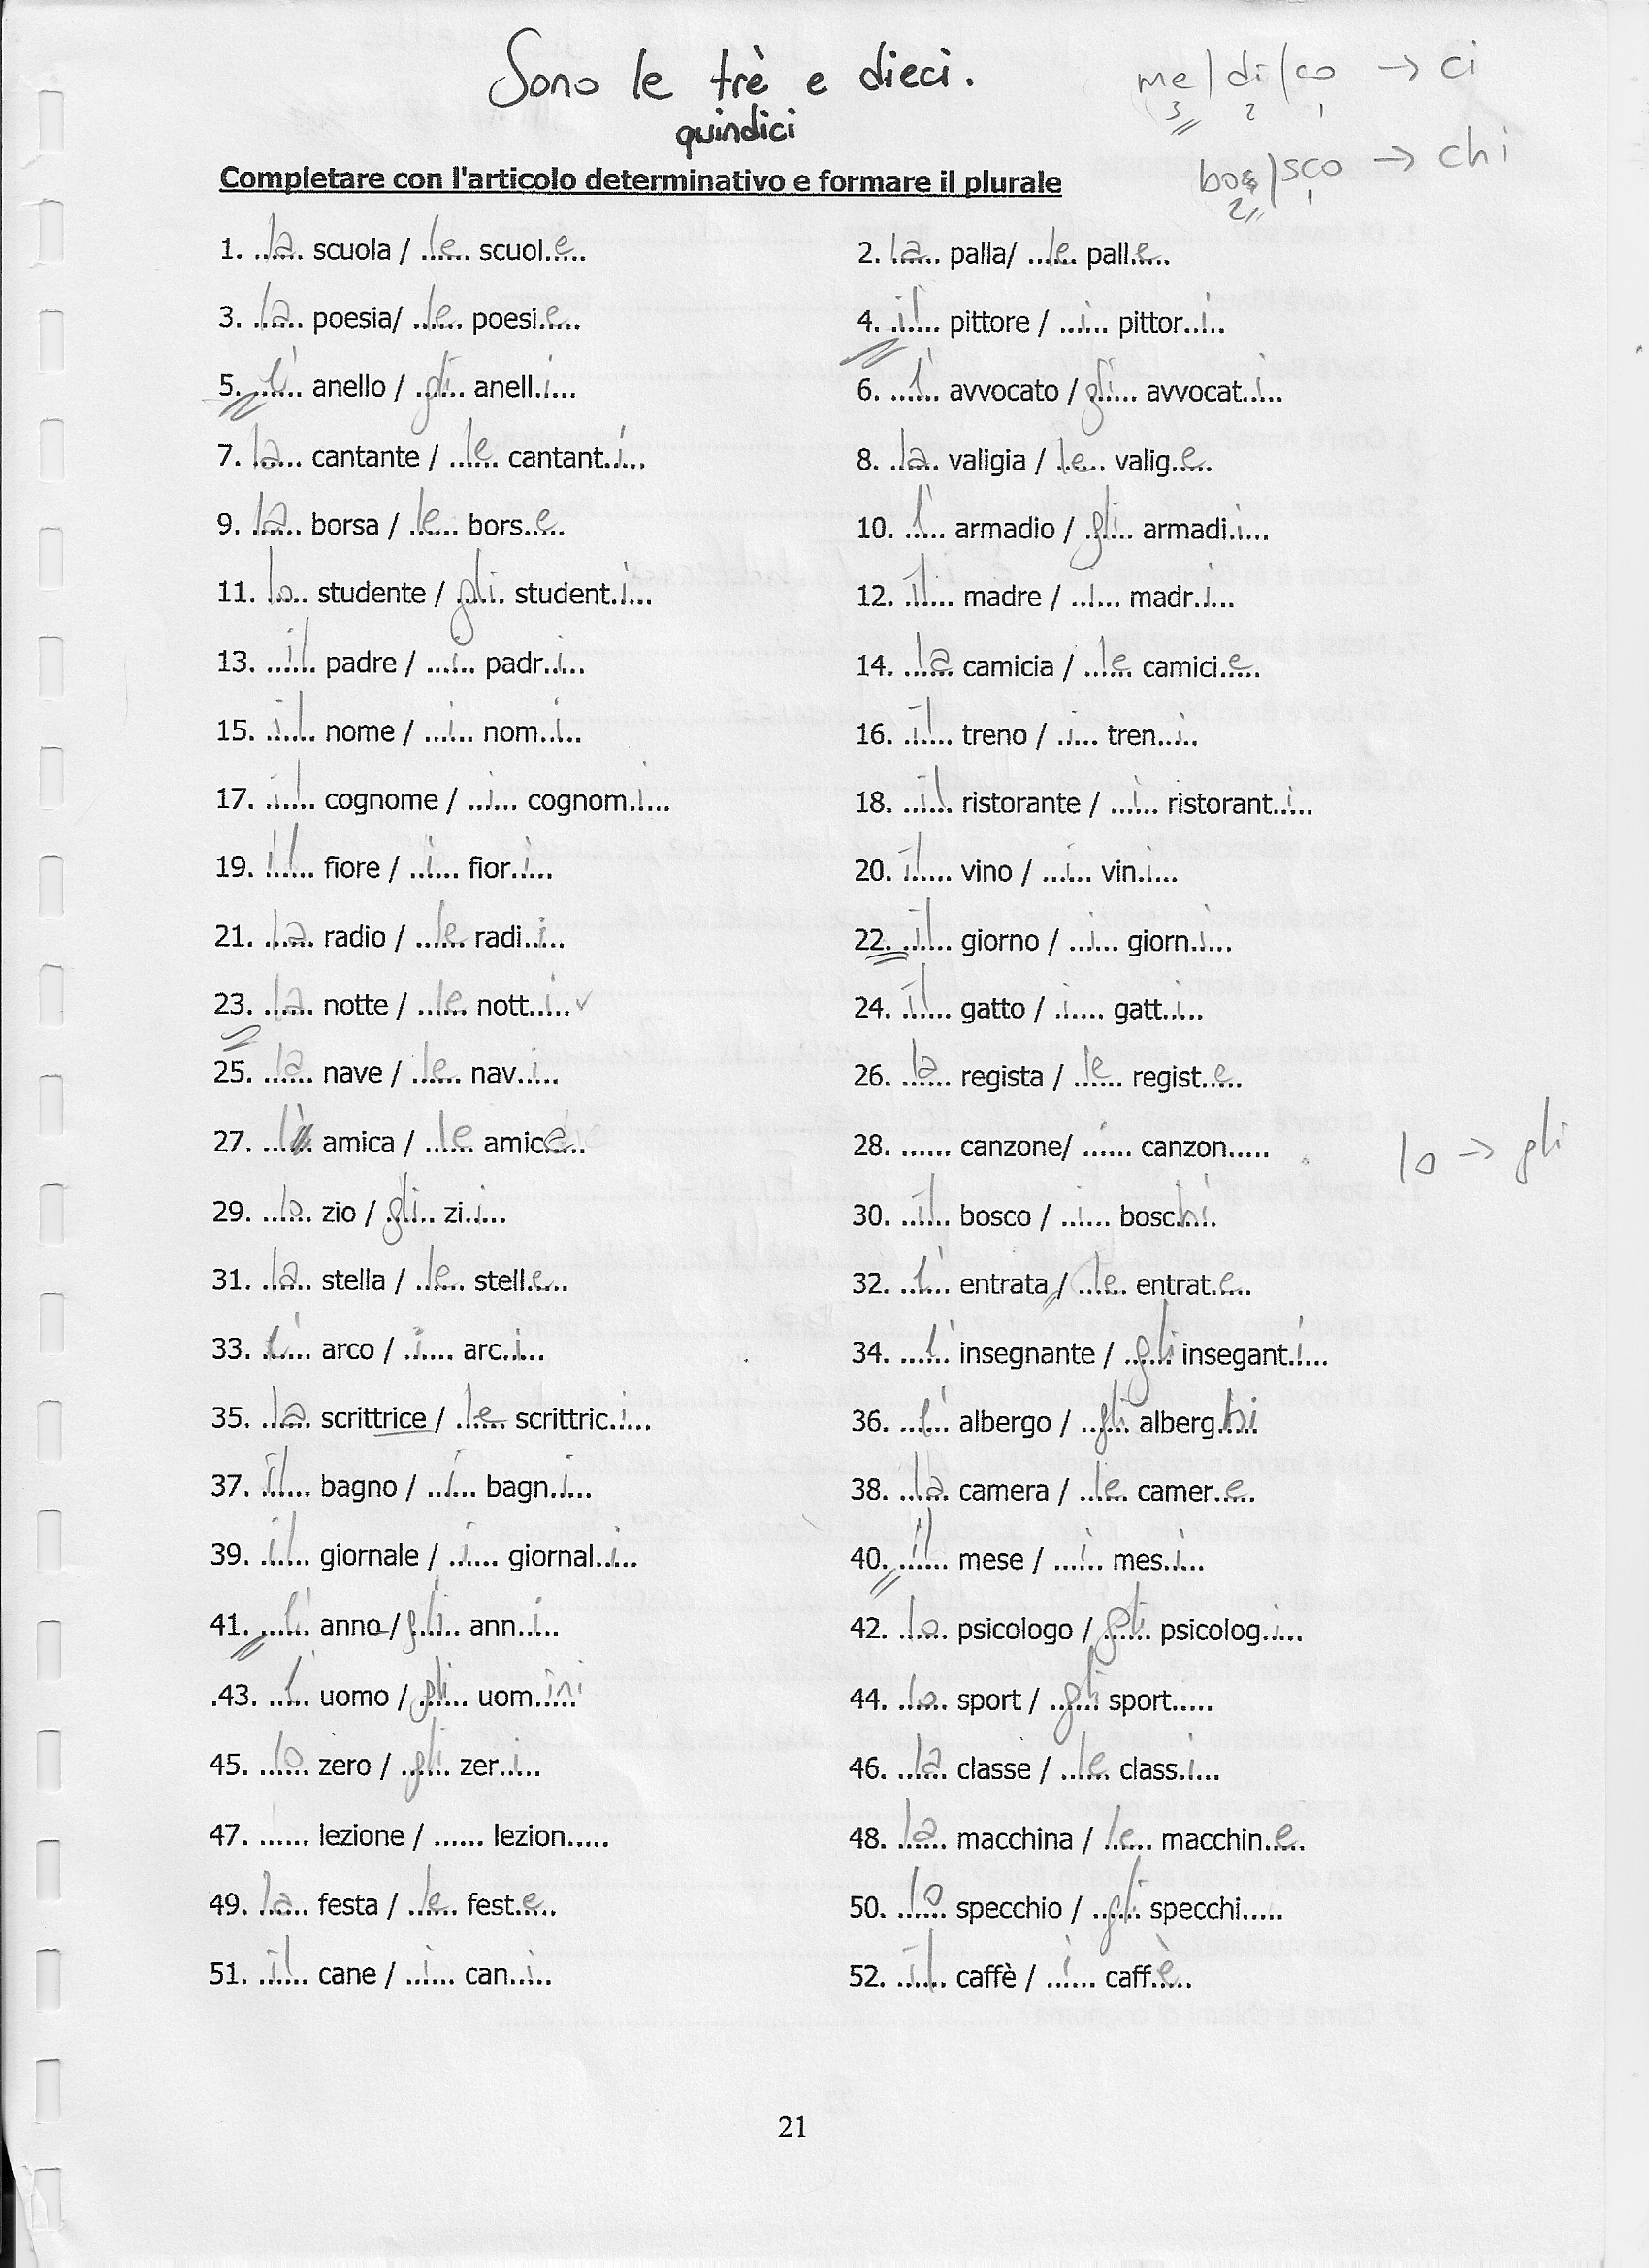 Sono le trè e dieci.
quindici
me/di/co → ci
3 2 1
bos/sco → chi
2 1
Completare con l'articolo determinativo e formare il plurale
1. ..la.. scuola / ..le.. scuol.e....
2. ..la.. palla/ ...le.. pall.e....
3. ..la.. poesia/ ..le.. poesi.e....
4. ..il... pittore / ...i... pittor..i..
5. ..l'.. anello / .gli.. anell.i...
6. ..l'... avvocato / gli... avvocat..i...
7. .la.... cantante / ..le... cantant..i...
8. ..la.. valigia / .le... valig.e...
9. .la.... borsa / .le.... bors.e...
10. ..l'... armadio / .gli... armadi.i...
11. .lo... studente / .gli.. student.i...
12. .il.... madre / ..i... madr.i...
13. ...il.. padre / ...i.. padr..i...
14. ..la.. camicia / ..le.. camici.e...
15. ..il.. nome / ...i.. nom..i..
16. .il.... treno / .i.... tren...i..
17. ..il.. cognome / ..i... cognom.i...
18. ..il.. ristorante / ...i.. ristorant..i...
19. .il.... fiore / ..i... fior..i...
20. .il.... vino / ...i.. vin.i...
21. .la.... radio / ...le. radi..i...
22. ..il... giorno / ..i... giorn.i...
23. ..la.. notte / ..le.. nott..i.. ✓
24. .il.... gatto / .i.... gatt..i...
25. ..la.. nave / ..le.. nav..i...
26. ..la.. regista / ..le.. regist.e...
27. ...l'.. amica / ..le.. amic.e...
28. ...... canzone/ ...... canzon.....
lo → gli
29. ..lo.. zio / .gli.. zi.i...
30. ..il.. bosco / ..i... bosc.hi.
31. ..la.. stella / ..le.. stell.e...
32. ..l'.. entrata / ..le.. entrat.e...
33. .l'.... arco / .i.... arc.i...
34. ...l'. insegnante / ..gli insegant.i...
35. ..la.. scrittrice / ..le.. scrittric.i...
36. ..l'.. albergo / ..gli. alberg.hi
37. .il.... bagno / ..i... bagn.i...
38. ..la.. camera / ..le.. camer.e...
39. .il.... giornale / ..i... giornal..i...
40. ..il.. mese / ...i.. mes.i...
41. ...l'. anno / gli... ann..i...
42. ..lo.. psicologo / gli... psicolog.i...
.43. ..l'.. uomo / gli... uom.ini
44. .lo... sport / ..gli sport.....
45. ..lo.. zero / .gli.. zer..i...
46. ..la.. classe / ..le.. class.i...
47. ...... lezione / ...... lezion.....
48. .la... macchina / .le... macchin.e...
49. .la... festa / ..le.. fest.e...
50. ..lo.. specchio / ..gli. specchi.....
51. ..il.. cane / ..i... can..i..
52. ..il.. caffè / ..i... caff.è...
21